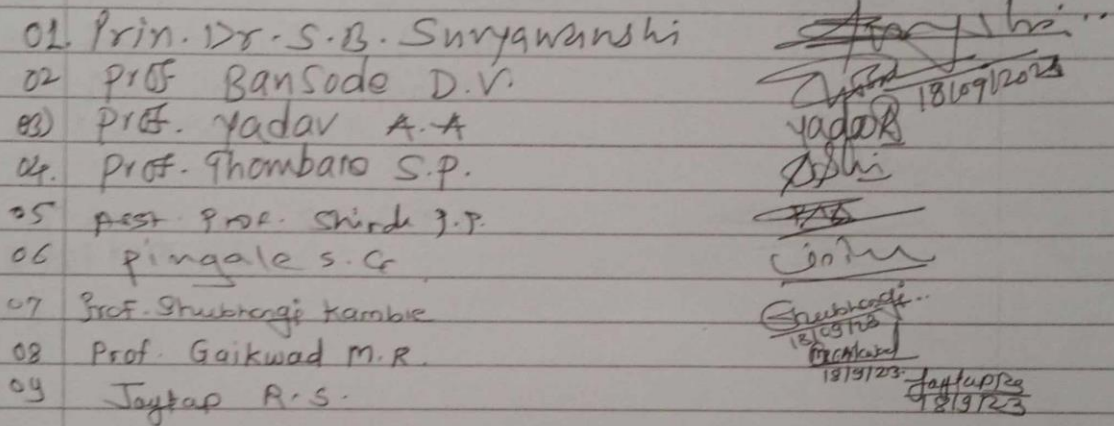 01. Prin. Dr. S.B. Suryawanshi
02 Prof Bansode D.V. 18/09/2023
03) Prof. Yadav A.A Yadav
04. Prof. Thombare S.P.
05 Asst. Prof. Shinde J.P.
06 Pingale S.G
07 Prof. Shubhangi Kamble Shubhangi 18/09/23
08 Prof. Gaikwad M.R. 18/9/23
09 Jagtap R.S. Jagtap RS 18/9/23